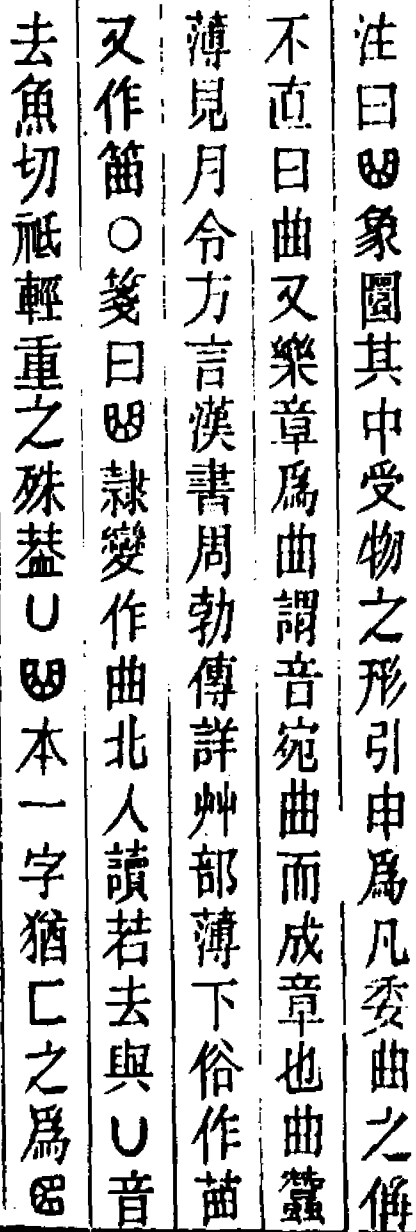 注曰曲象圜其中受物之形引申爲凡委曲之偁
不直曰曲又樂章爲曲謂音宛曲而成章也曲蠶
薄見月令方言漢書周勃傳詳艸部薄下俗作䒼
又作𥬔○箋曰曲隸變作曲北人讀若去與凵音
去魚切祗輕重之殊葢凵曲本一字猶匚之爲